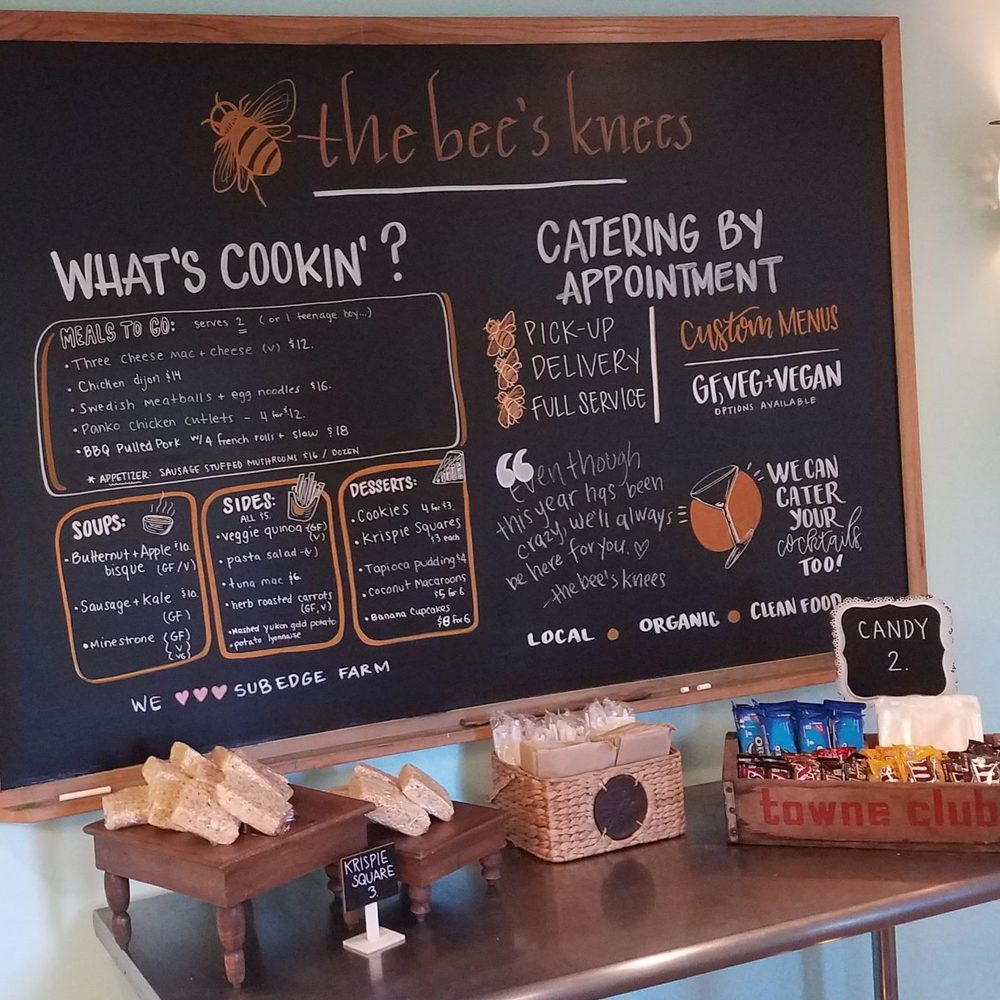 the bee's knees
WHAT'S COOKIN'?
MEALS TO GO: serves 2 (or 1 teenage boy...)
• Three cheese mac + cheese (v) $12.
• Chicken dijon $14
• Swedish meatballs + egg noodles $16.
• Panko chicken cutlets – 4 for $12.
• BBQ Pulled Pork w/ 4 french rolls + slaw $18
* APPETIZER: SAUSAGE STUFFED MUSHROOMS $16 / DOZEN
SOUPS:
• Butternut + Apple $10.
bisque (GF/V)
• Sausage + Kale $10.
(GF)
• Minestrone (GF)
(V)
(VG)
SIDES:
ALL $5.
• veggie quinoa (GF)
(V)
• pasta salad (v)
• tuna mac $6
• herb roasted carrots
(GF, V)
• Mashed yukon gold potato
• potato lyonnaise
DESSERTS:
• Cookies 4 for $3.
• Krispie Squares
$3 each
• Tapioca pudding $4
• Coconut Macaroons
$5 for 6
• Banana Cupcakes
$8 for 6
WE SUBEDGE FARM
CATERING BY
APPOINTMENT
PICK-UP
DELIVERY
FULL SERVICE
Custom MENUS
GF, VEG + VEGAN
OPTIONS AVAILABLE
“Even though
this year has been
crazy, we'll always
be here for you.
– the bee's knees
WE CAN
CATER
YOUR
cocktails,
TOO!
LOCAL • ORGANIC • CLEAN FOOD
CANDY
2.
KRISPIE
SQUARE
3.
towne club